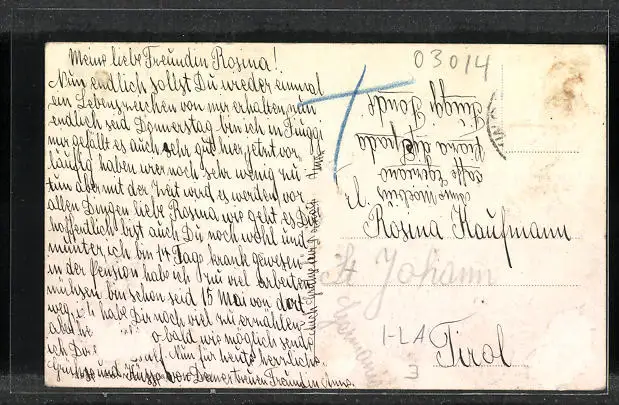 Meine liebe Freundin Rosina!
Nun endlich sollst Du wieder einmal
ein Lebenszeichen von mir erhalten, nun
endlich seid Donnerstag bin ich in Fiuggi
mir gefällt es auch sehr gut hier jetzt vor
läufig haben wir noch sehr wenig zu
tun aber mit der Zeit wird es werden, vor
allen Dingen liebe Rosina wie geht es Dir
hoffentlich bist auch Du noch wohl und
munter, ich bin 14 Tage krank gewesen
in der Pension habe ich zu viel arbeiten
müssen bin schon seid 15 Mai von dort
weg. habe Dir noch viel zu erzählen
obald wie möglich
ich Dir auf. Nun für heute herzliche
Grüsse und Küsse von Deiner treuen Freundin Anna.
03014
Fiuggi Fonte
Rosina Kaufmann
St Johann
Germania
I-LA
3
Tirol